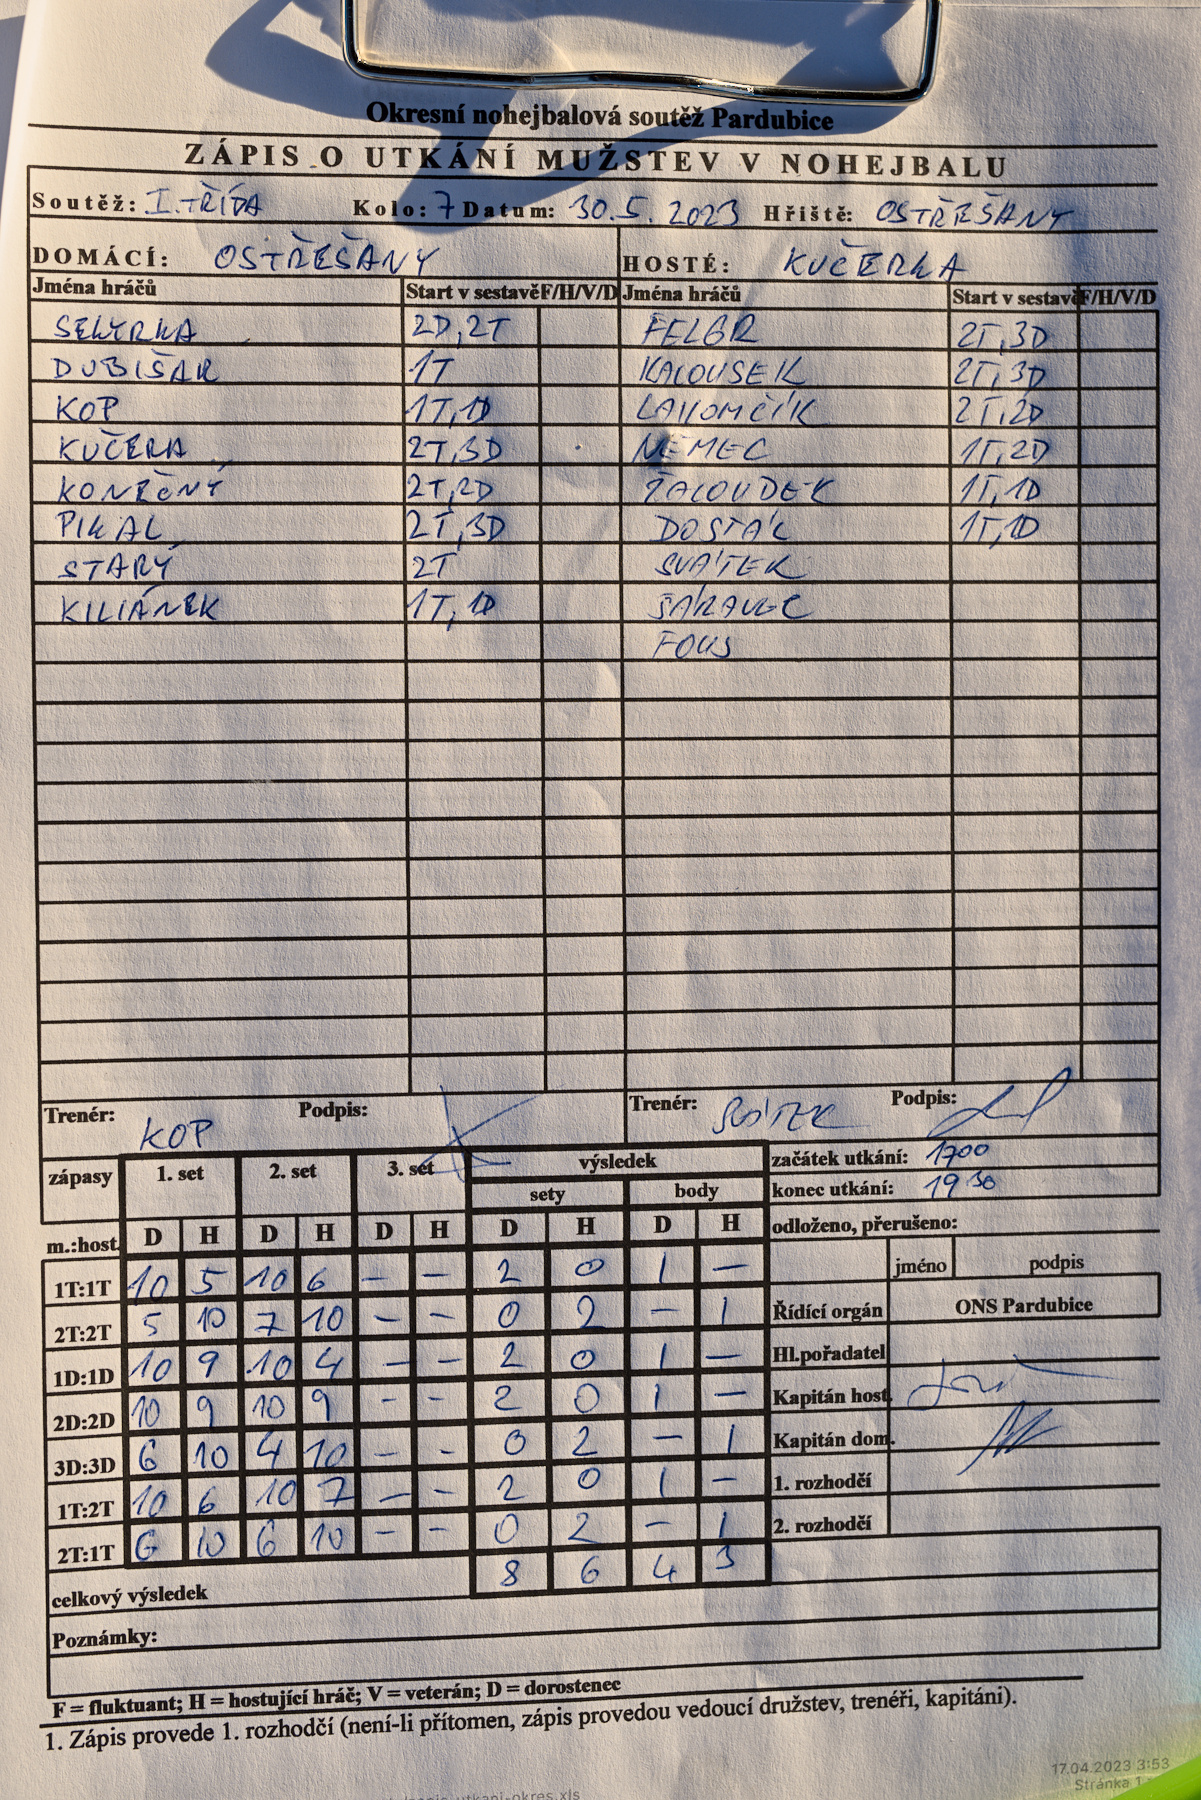 Okresní nohejbalová soutěž Pardubice
ZÁPIS O UTKÁNÍ MUŽSTEV V NOHEJBALU
Soutěž: I. TŘÍDA Kolo: 7 Datum: 30.5. 2023 Hřiště: OSTŘEŠANY
DOMÁCÍ: OSTŘEŠANY HOSTÉ: KUČERKA
Jména hráčů Start v sestavě F/H/V/D Jména hráčů Start v sestavě F/H/V/D
SEKYRKA 2D,2T FELGR 2T,3D
DUBIŠAR 1T KALOUSEK 2T,3D
KOP 1T,1D LAKOMČÍK 2T,2D
KUČERA 2T,3D NĚMEC 1T,2D
KONEČNÝ 2T,2D ŽALOUDEK 1T,1D
PIKAL 2T,3D DOSTÁL 1T,1D
STARÝ 2T SVÁTEK
KILIÁNEK 1T,1D
FOUS
Trenér: KOP Podpis: Trenér: Podpis:
zápasy 1. set 2. set 3. set výsledek začátek utkání: 1700
sety body konec utkání: 19 30
m.:host. D H D H D H D H D H odloženo, přerušeno:
jméno podpis
1T:1T 10 5 10 6 – – 2 0 1 –
2T:2T 5 10 7 10 – – 0 2 – 1 Řídící orgán ONS Pardubice
1D:1D 10 9 10 4 – – 2 0 1 – Hl.pořadatel
2D:2D 10 9 10 9 – – 2 0 1 – Kapitán host.
3D:3D 6 10 4 10 – – 0 2 – 1 Kapitán dom.
1T:2T 10 6 10 7 – – 2 0 1 – 1. rozhodčí
2T:1T 6 10 6 10 – – 0 2 – 1 2. rozhodčí
celkový výsledek 8 6 4 3
Poznámky:
F = fluktuant; H = hostující hráč; V = veterán; D = dorostenec
1. Zápis provede 1. rozhodčí (není-li přítomen, zápis provedou vedoucí družstev, trenéři, kapitáni).
17.04.2023 3:53
Stránka 1